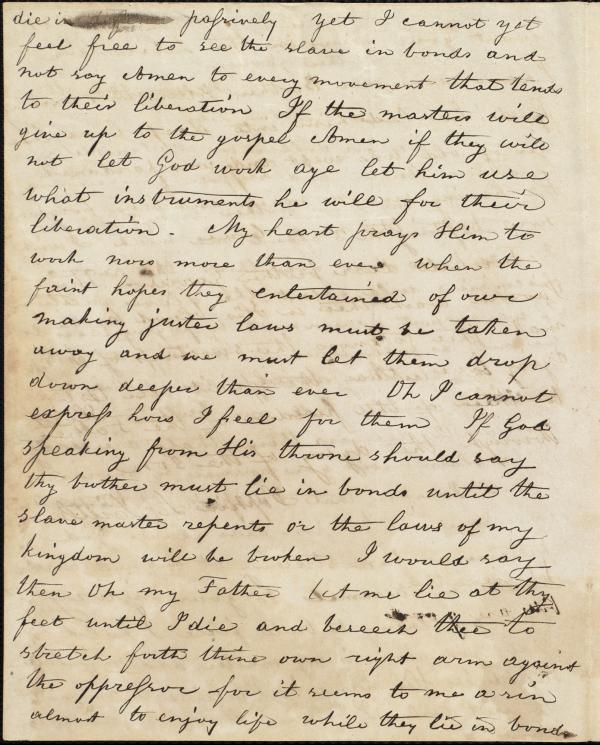 die in passively yet I cannot yet
feel free to see the slave in bonds and
not say Amen to every movement that tends
to their liberation If the masters will
give up to the gospel Amen if they will
not let God work aye let him use
what instruments he will for their
liberation - My heart prays Him to
work now more than ever when the
faint hopes they entertained of our
making juster laws must be taken
away and we must let them drop
down deeper than ever Oh I cannot
express how I feel for them If God
speaking from His throne should say
thy brother must lie in bonds until the
slave master repents or the laws of my
kingdom will be broken I would say
then Oh my Father let me lie at thy
feet until I die and beseech thee to
stretch forth thine own right arm against
the oppressor for it seems to me a sin
almost to enjoy life while they lie in bonds